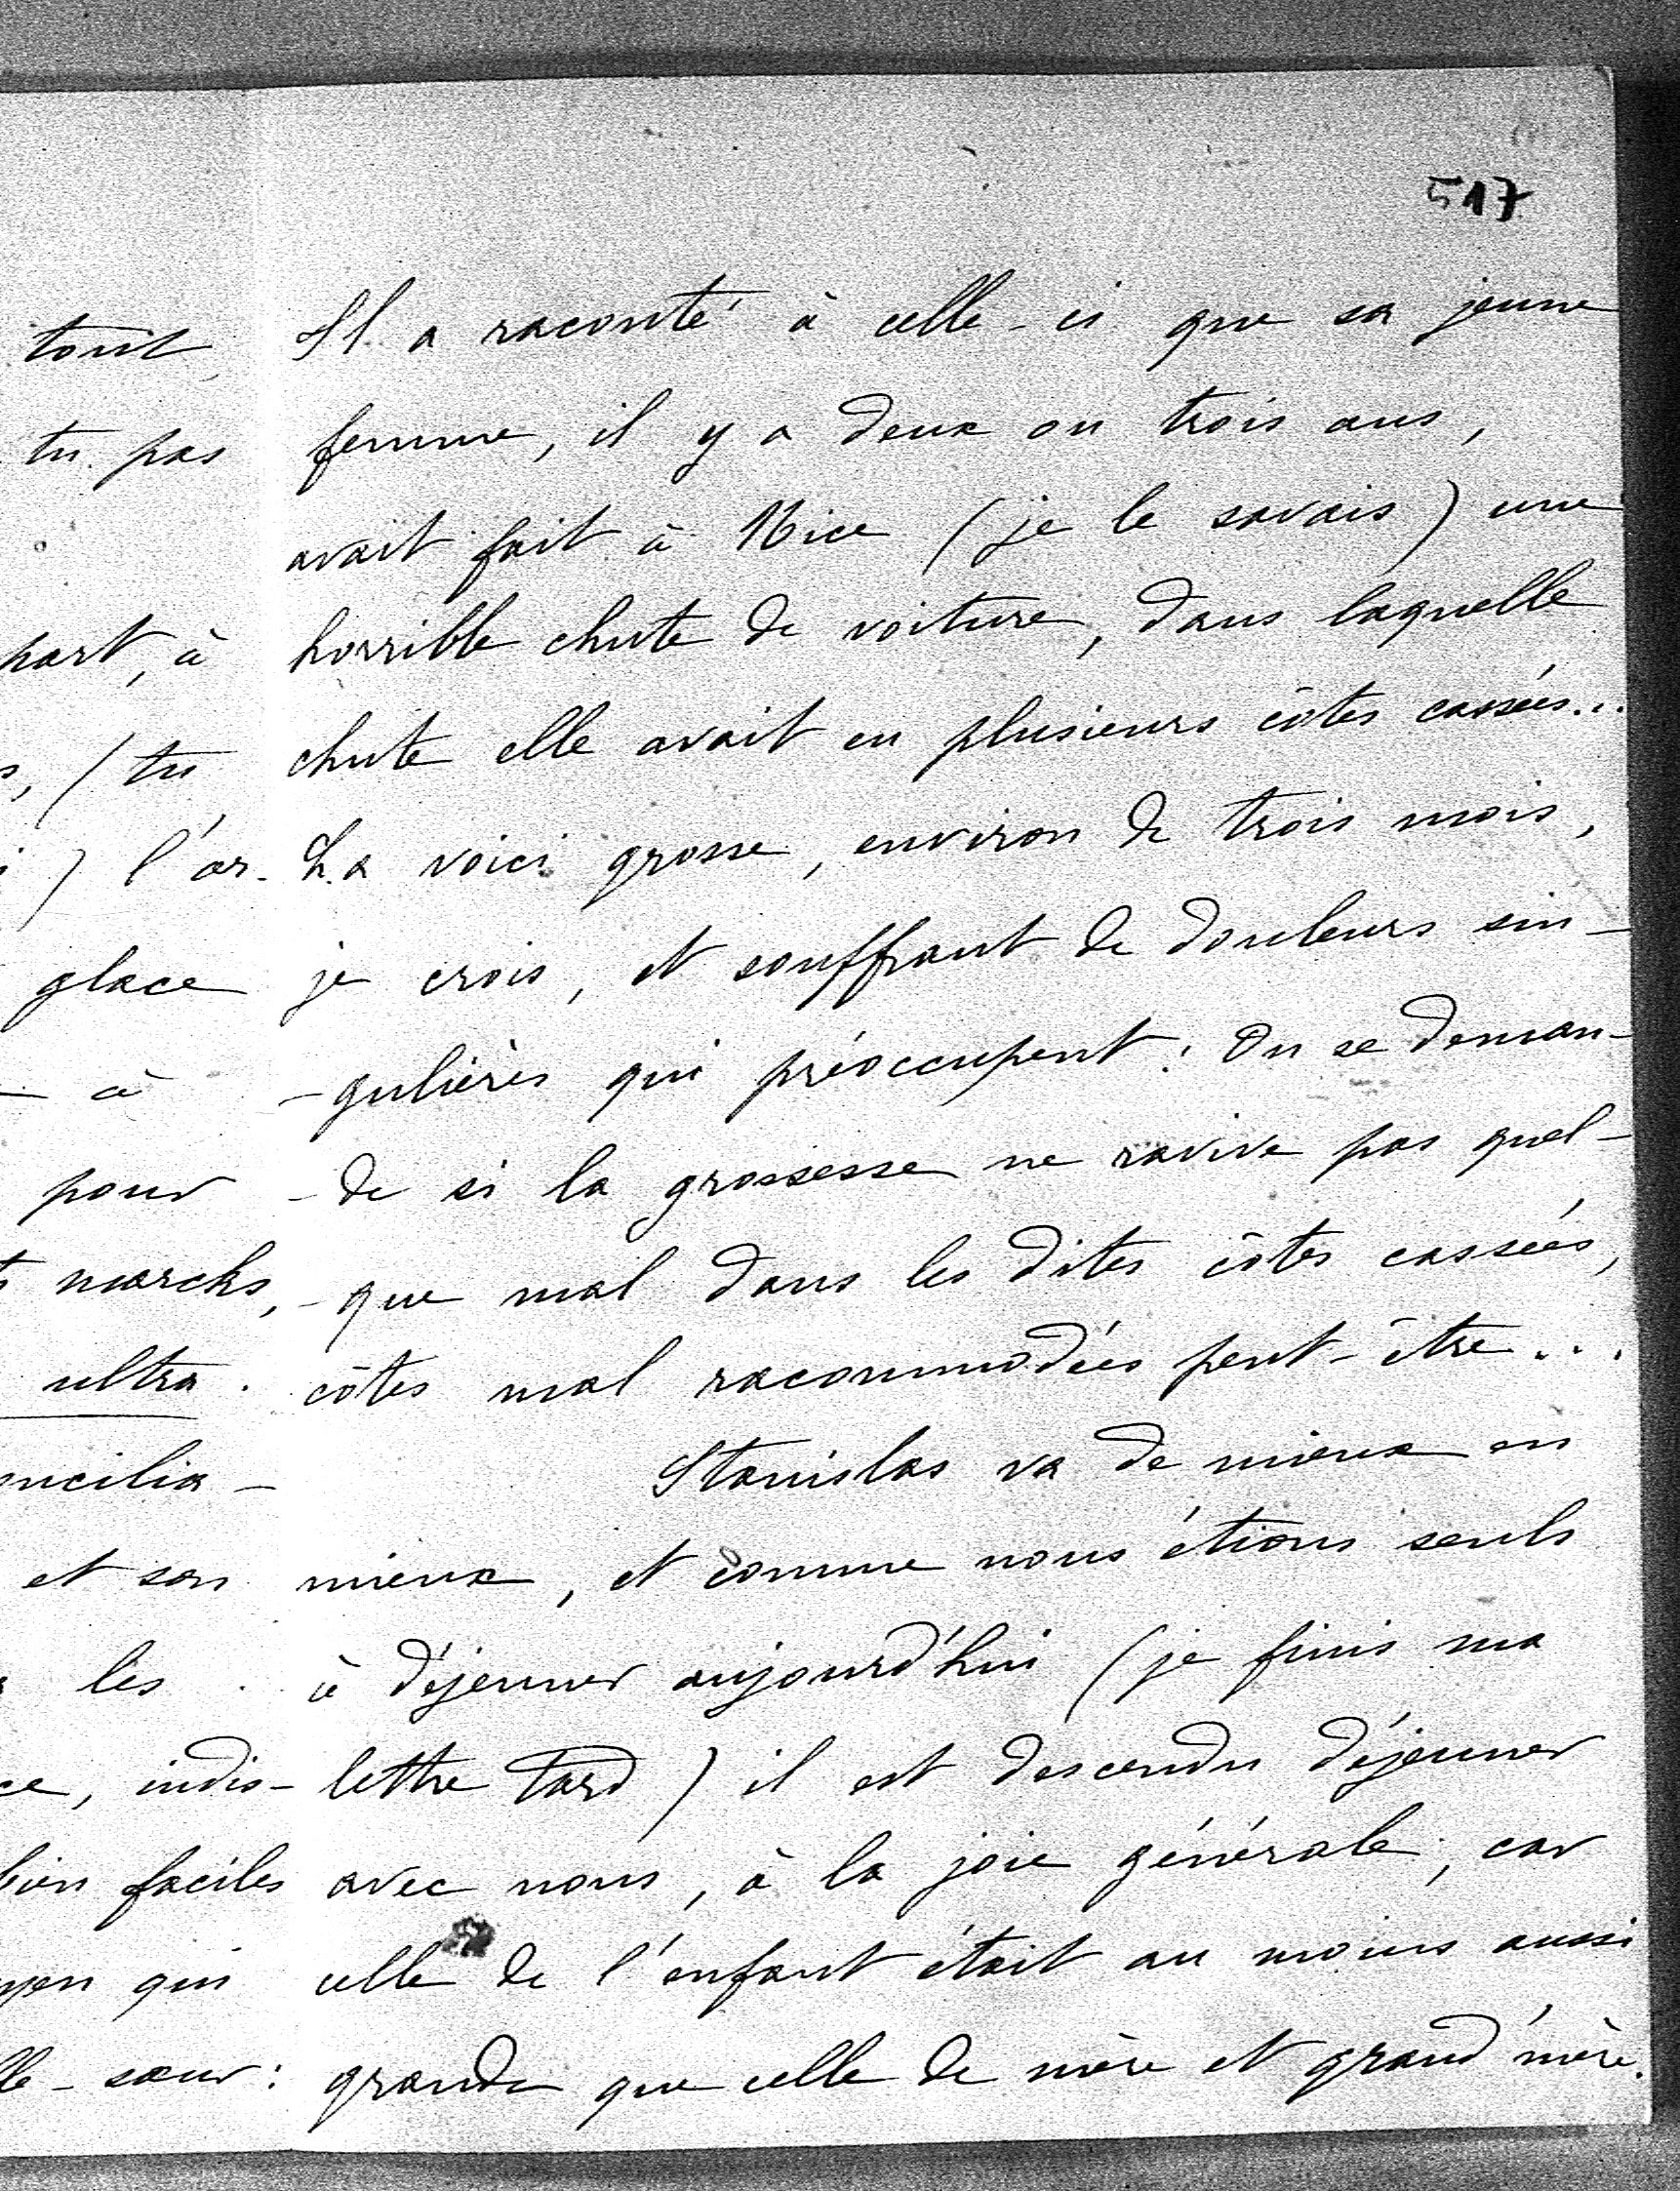 517
tout
tu pas
part, à
s, (tu
i) l'ar-
glace
- à
pour
marcks,
ultra.
oncilia-
et son
les
ce, indis-
bien faciles
yen qui
lle-sœur:
Il a raconté à celle-ci que sa jeune
femme, il y a deux ou trois ans,
avait fait à Nice (je le savais) une
horrible chute de voiture, dans laquelle
chute elle avait eu plusieurs côtes cassées...
La voici grosse, environ de trois mois,
je crois, et souffrant de douleurs sin-
-gulières qui préoccupent! On se deman-
-de si la grossesse ne ravive pas quel-
-que mal dans les dites côtes cassées,
côtes mal racommodées peut-être...
Stanislas va de mieux en
mieux, et comme nous étions seuls
à déjeuner aujourd'hui (je finis ma
lettre tard) il est descendu déjeuner
avec nous, à la joie générale, car
celle de l'enfant était au moins aussi
grande que celle de mère et grand'mère.